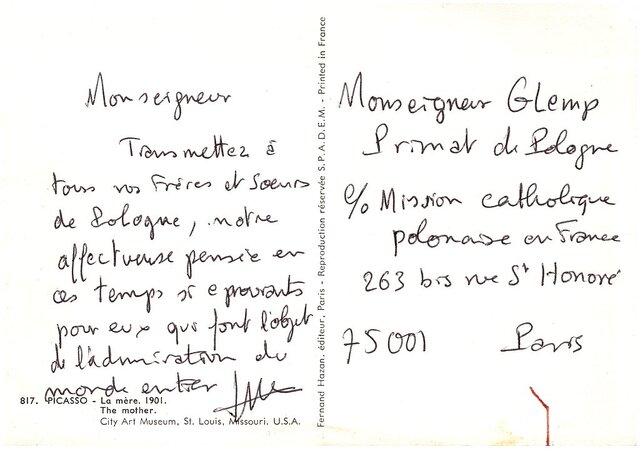 Monseigneur
Transmettez à
tous vos Frères et Soeurs
de Pologne, notre
affectueuse pensée en
ces temps si éprouvants
pour eux qui font l'objet
de l'admiration du
monde entier
817. PICASSO - La mère. 1901.
The mother.
City Art Museum, St. Louis, Missouri, U.S.A.
Fernand Hazan, éditeur, Paris - Reproduction réservée S.P.A.D.E.M. - Printed in France
Monseigneur Glemp
Primat de Pologne
c/o Mission catholique
polonaise en France
263 bis rue St Honoré
75001 Paris